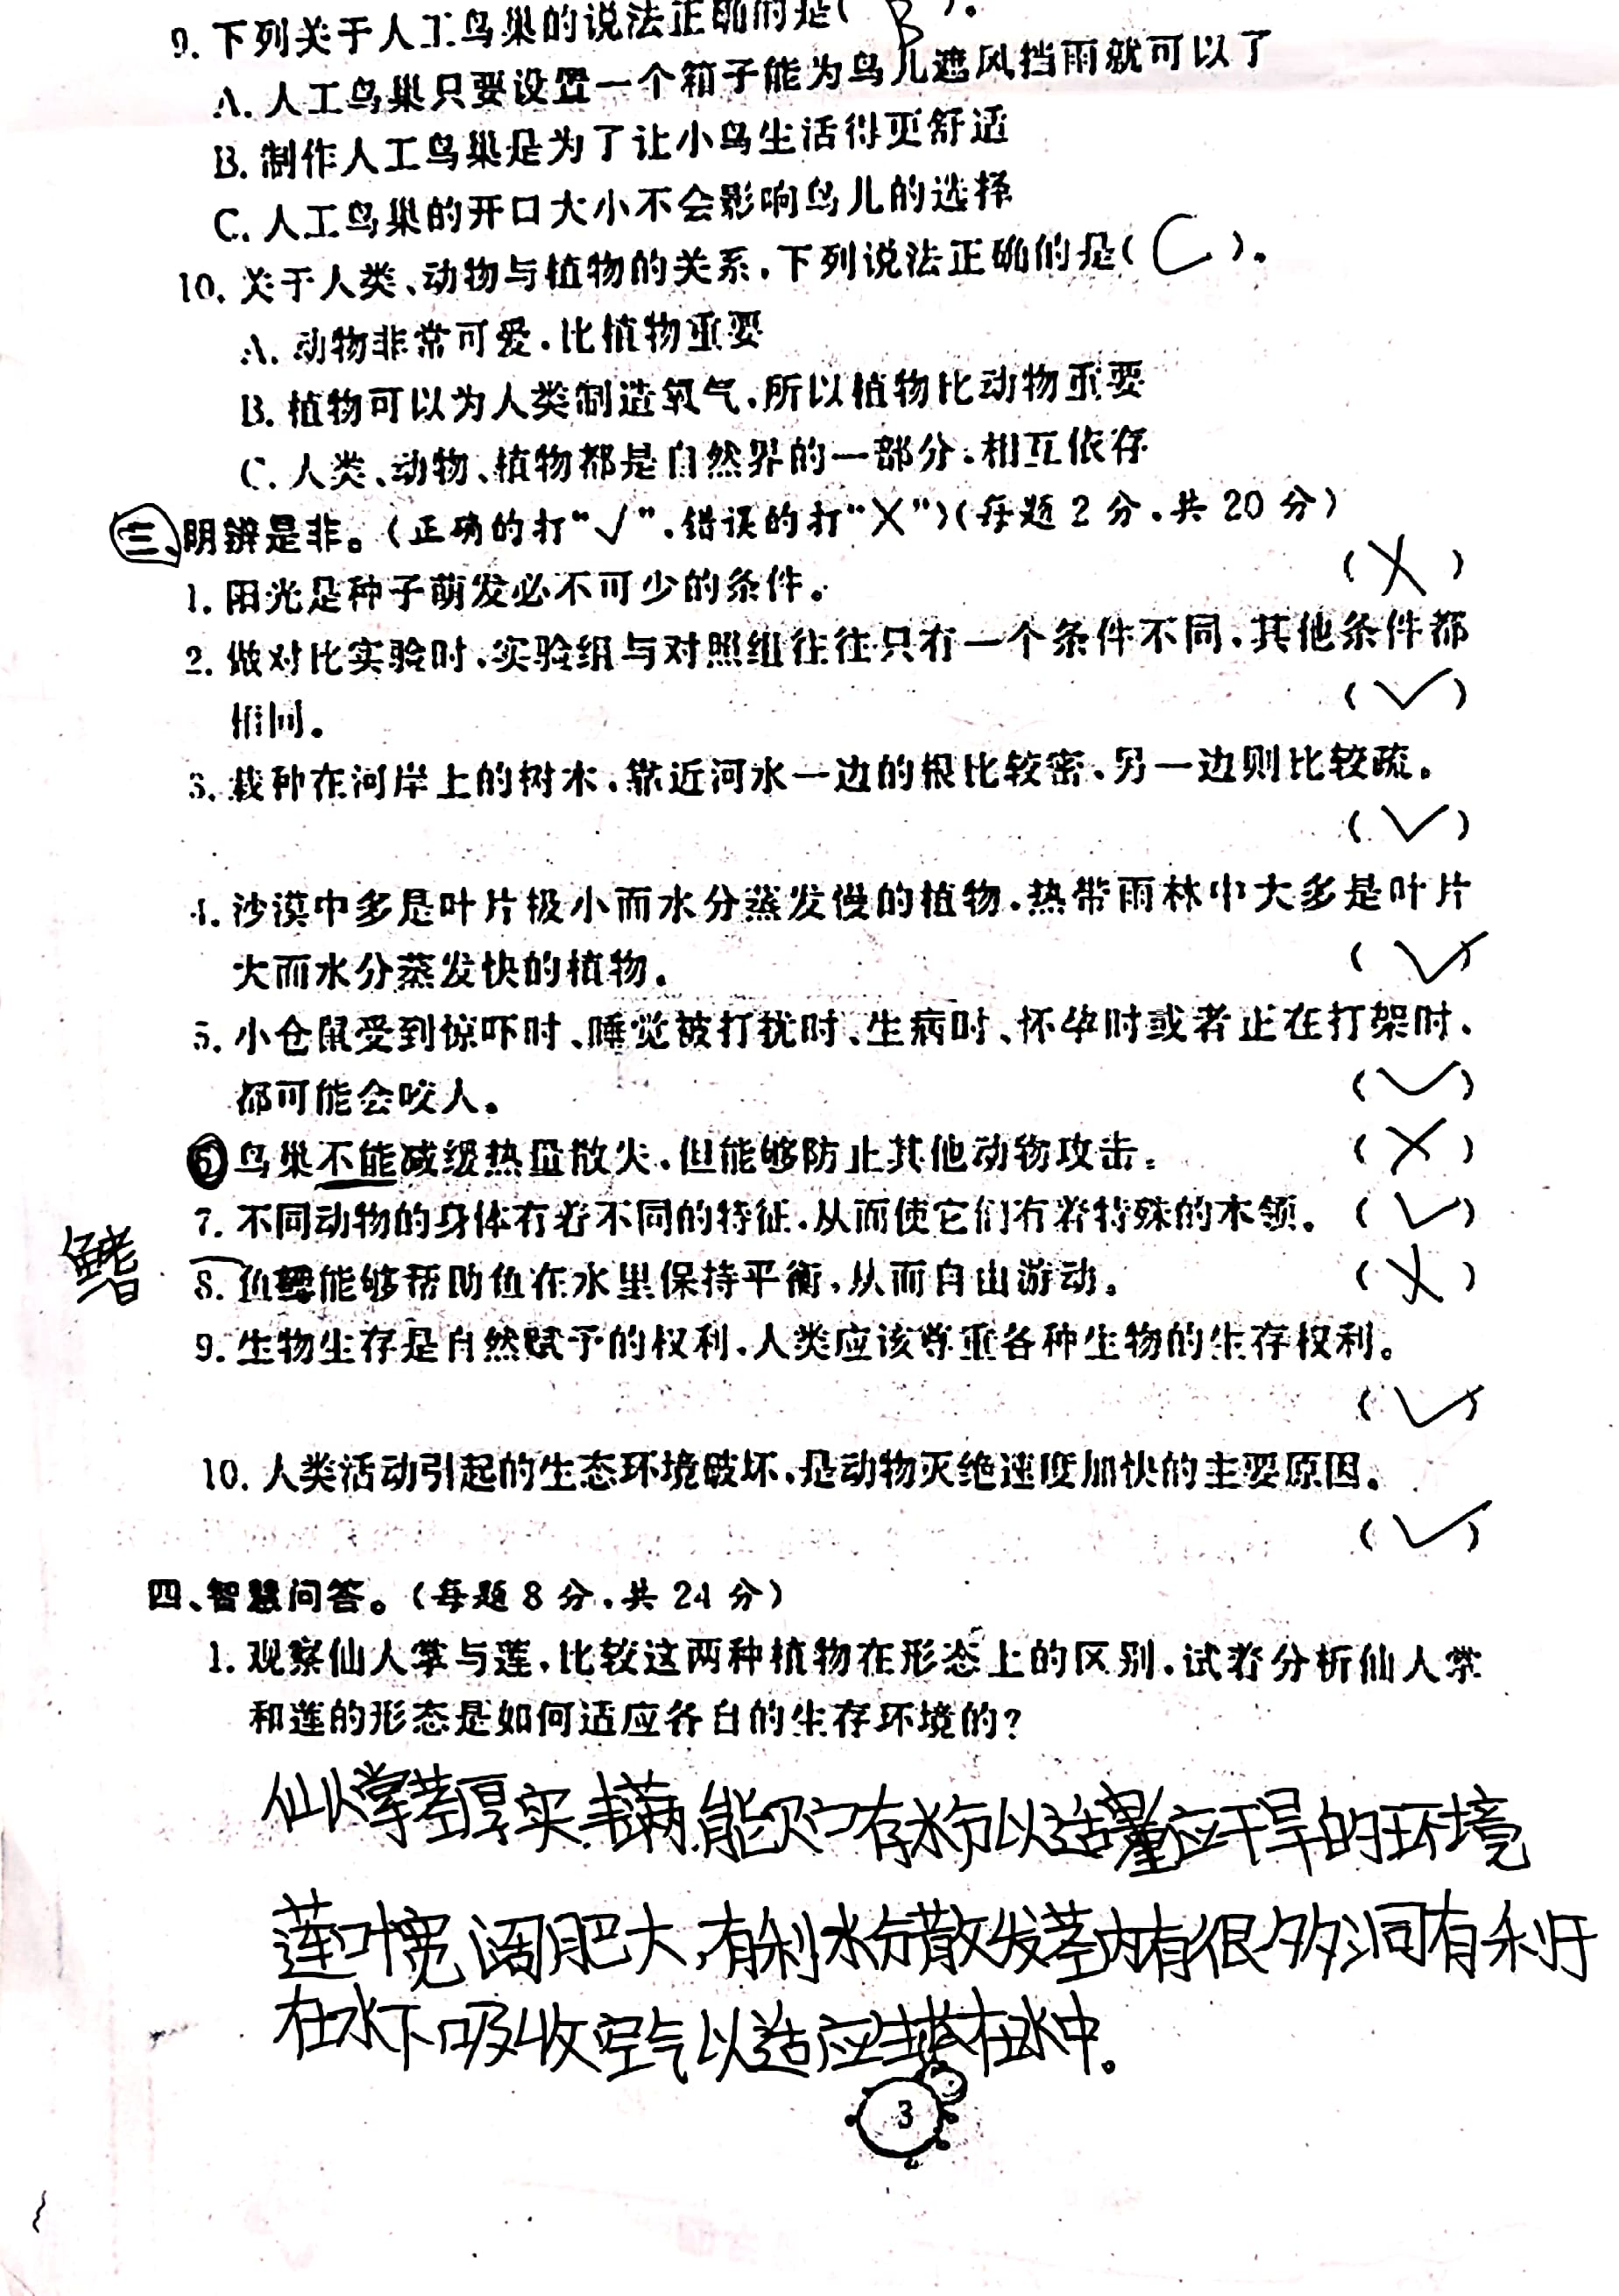 9. 下列关于人工鸟巢的说法正确的是( B )。
A. 人工鸟巢只要设置一个箱子能为鸟儿遮风挡雨就可以了
B. 制作人工鸟巢是为了让小鸟生活得更舒适
C. 人工鸟巢的开口大小不会影响鸟儿的选择
10. 关于人类、动物与植物的关系,下列说法正确的是( C )。
A. 动物非常可爱,比植物重要
B. 植物可以为人类制造氧气,所以植物比动物重要
C. 人类、动物、植物都是自然界的一部分,相互依存
三、明辨是非。(正确的打“√”,错误的打“X”)(每题 2 分,共 20 分)
1. 阳光是种子萌发必不可少的条件。 (X)
2. 做对比实验时,实验组与对照组往往只有一个条件不同,其他条件都
相同。 (√)
3. 栽种在河岸上的树木,靠近河水一边的根比较密,另一边则比较疏。
(√)
4. 沙漠中多是叶片极小而水分蒸发慢的植物,热带雨林中大多是叶片
大而水分蒸发快的植物。 (√)
5. 小仓鼠受到惊吓时、睡觉被打扰时、生病时、怀孕时或者正在打架时,
都可能会咬人。 (√)
6 鸟巢不能减缓热量散失,但能够防止其他动物攻击。 (X)
7. 不同动物的身体有着不同的特征,从而使它们有着特殊的本领。 (√)
鳍
8. 鱼鳔能够帮助鱼在水里保持平衡,从而自由游动。 (X)
9. 生物生存是自然赋予的权利,人类应该尊重各种生物的生存权利。
(√)
10. 人类活动引起的生态环境破坏,是动物灭绝速度加快的主要原因。
(√)
四、智慧问答。(每题 8 分,共 24 分)
1. 观察仙人掌与莲,比较这两种植物在形态上的区别,试着分析仙人掌
和莲的形态是如何适应各自的生存环境的?
仙人掌茎厚实 能贮存水分以适应干旱的环境
莲叶宽阔肥大,有利水分散发茎内有很多洞有利于
在水下吸收空气以适应生活在水中。
3